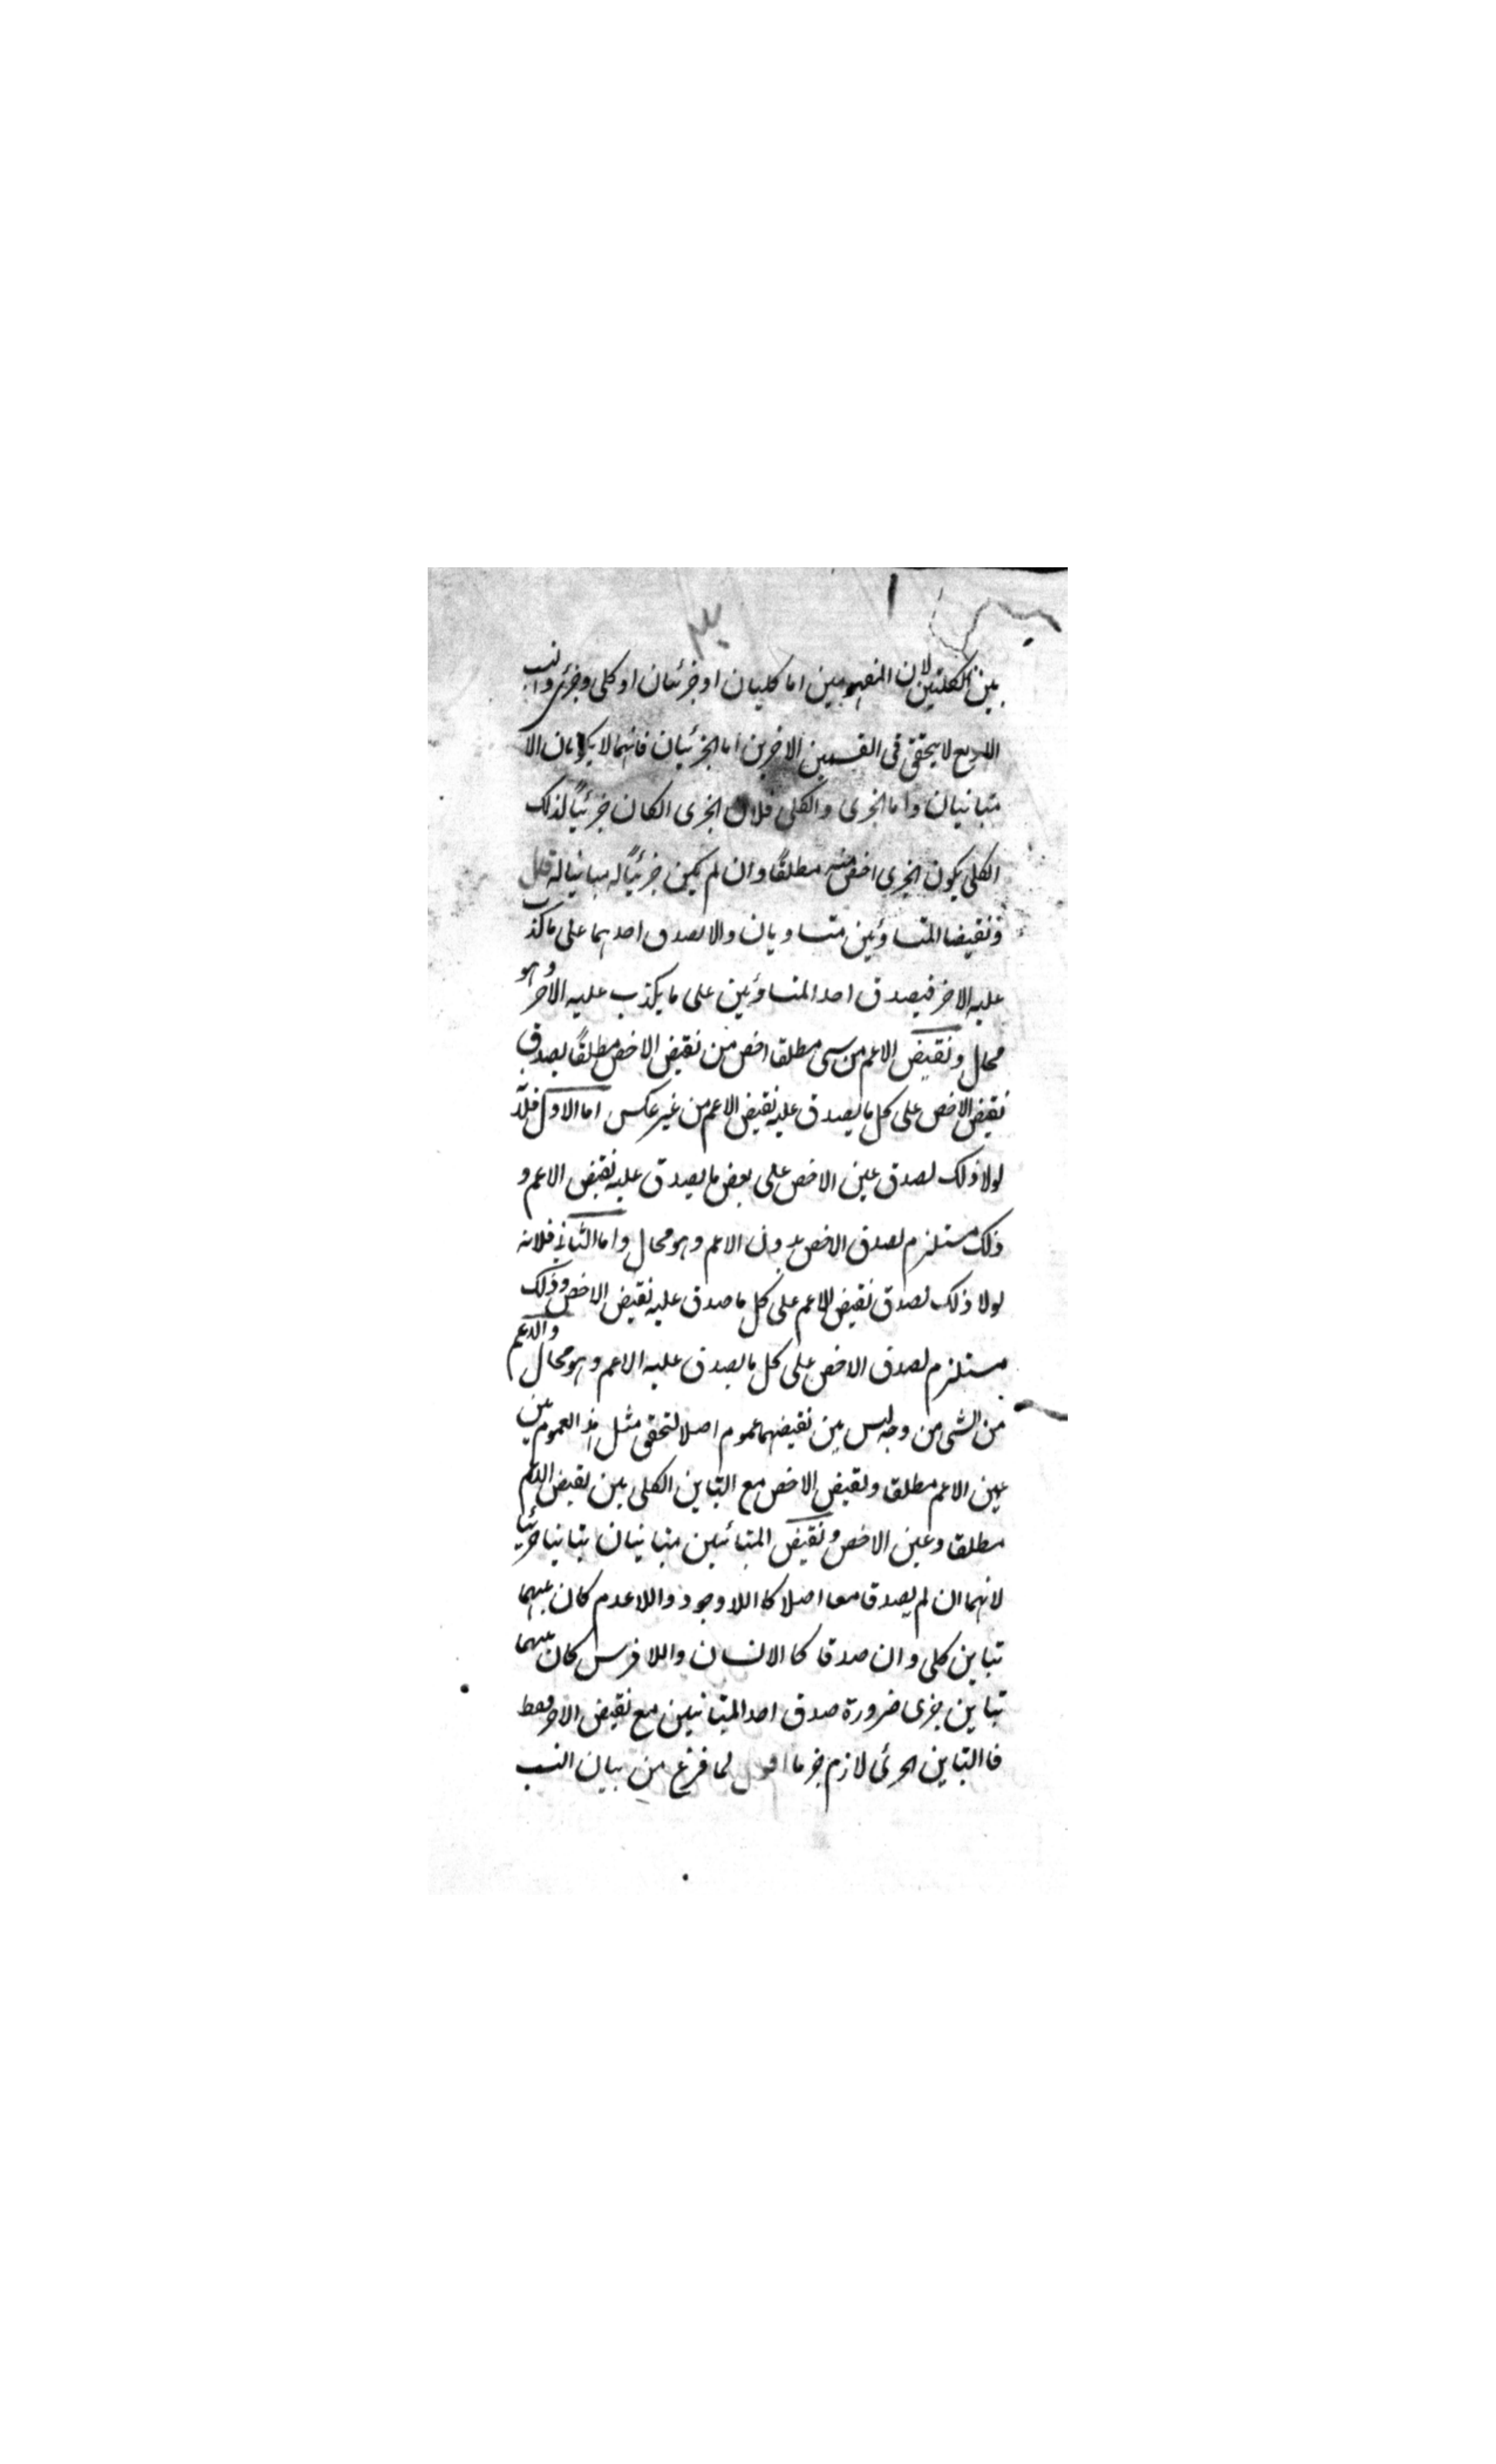 بين الكليتين لان المفهومين اما كليان او جزئيان او كلى وجزئى والنسب
الاربع لا يتحقق فى القسمين الاخرين اما الجزئيان فانهما لا يكونان الا
متبانيان واما الجزى والكلى فلان الجزى الكان جزئيًا لذلك
الكلى يكون الجزى اخص منه مطلقًا وان لم يكن جزئيًا له مبانيا له قال
ونقيضا المتساوئين متساويان والا لصدق احدهما على ما كذب
عليه الاخر فيصدق احد المتساوئين على ما يكذب عليه الاخر وهو
محال ونقيض الاعم من شى مطلقا اخص من نقيض الاخص مطلقًا لصدق
نقيض الاخص على كل ما يصدق عليه نقيض الاعم من غير عكس اما الاول فلانه
لولا ذلك لصدق عين الاخص على بعض ما يصدق عليه نقيض الاعم و
ذلك مستلزم لصدق الاخص بدون الاعم وهو محال واما الثانى فلانه
لولا ذلك لصدق نقيض الاعم على كل ما صدق عليه نقيض الاخص وذلك
مستلزم لصدق الاخص على كل ما يصدق عليه الاعم وهو محال والاعم
من الشى من وجه ليس بين نقيضهما عموم اصلا لتحقق مثل هذ العموم بين
عين الاعم مطلقا ونقيض الاخص مع التباين الكلى بين نقيض الاعم
مطلقا وعين الاخص ونقيض المتبائنين متبانيان بتاينا جزئيا
لانهما ان لم يصدقا معا اصلا كا اللاوجود واللاعدم كان بينهما
تباين كلى وان صدقا كا الانسان واللافرس كان بينهما
تباين جزى ضرورة صدق احد المتبانيين مع نقيض الاخر فقط
فا التباين الجزئى لازم جزما اقول لما فرغ من بيان النسب